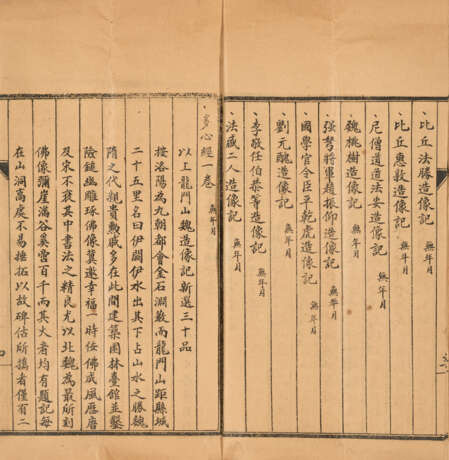 比丘法勝造像記 無年月
比丘惠敢造像記 無年月
尼僧道道法安造像記 無年月
魏桃樹造像記 無年月
强弩將軍趙振仰造像記 無年月
國學官令臣平乾虎造像記 無年月
劉元醜造像記 無年月
李敬任伯恭等造像記 無年月
法感二人造像記 無年月
多心經一卷 無年月
以上龍門山魏造像記新選三十品
按洛陽為九朝都會金石淵藪而龍門山距縣城
二十五里名曰伊闕伊水出其下占山水之勝魏
隋之代親貴勲戚多在此間建築園林臺館並鑿
險鎚幽雕琢佛像冀邀幸福一時佞佛成風歷唐
及宋不衰其中書法之精良尤以北魏為最所刻
佛像彌崖滿谷奚啻百千而其大者均有題記每
在山洞高處不易捶拓以故碑估所攜者僅有二
四